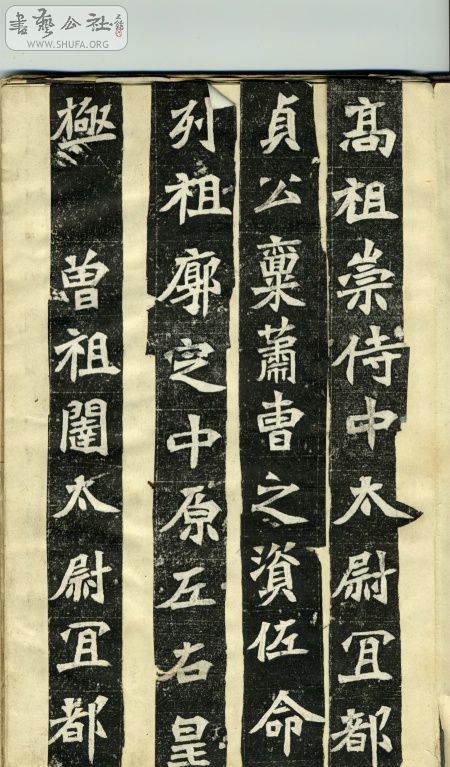 書藝公社
WWW.SHUFA.ORG
髙祖崇侍中太尉冝都
貞公稟蕭曺之資佐命
列祖廓定中原左右皇
極　曽祖闡太尉冝都